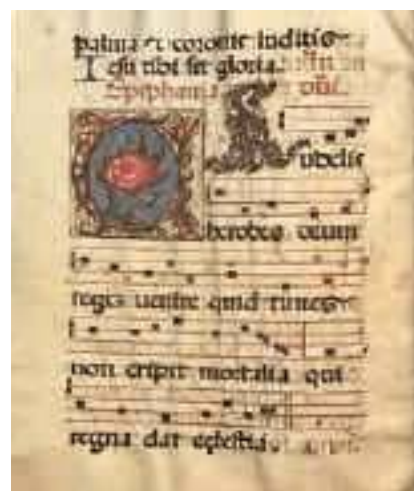 palma et corone inditis
Iesu tibi sit gloria.
Epiphania
udelis
herodes deum
regis uenire quid times
non eripit mortalia qui
regna dat celestia.